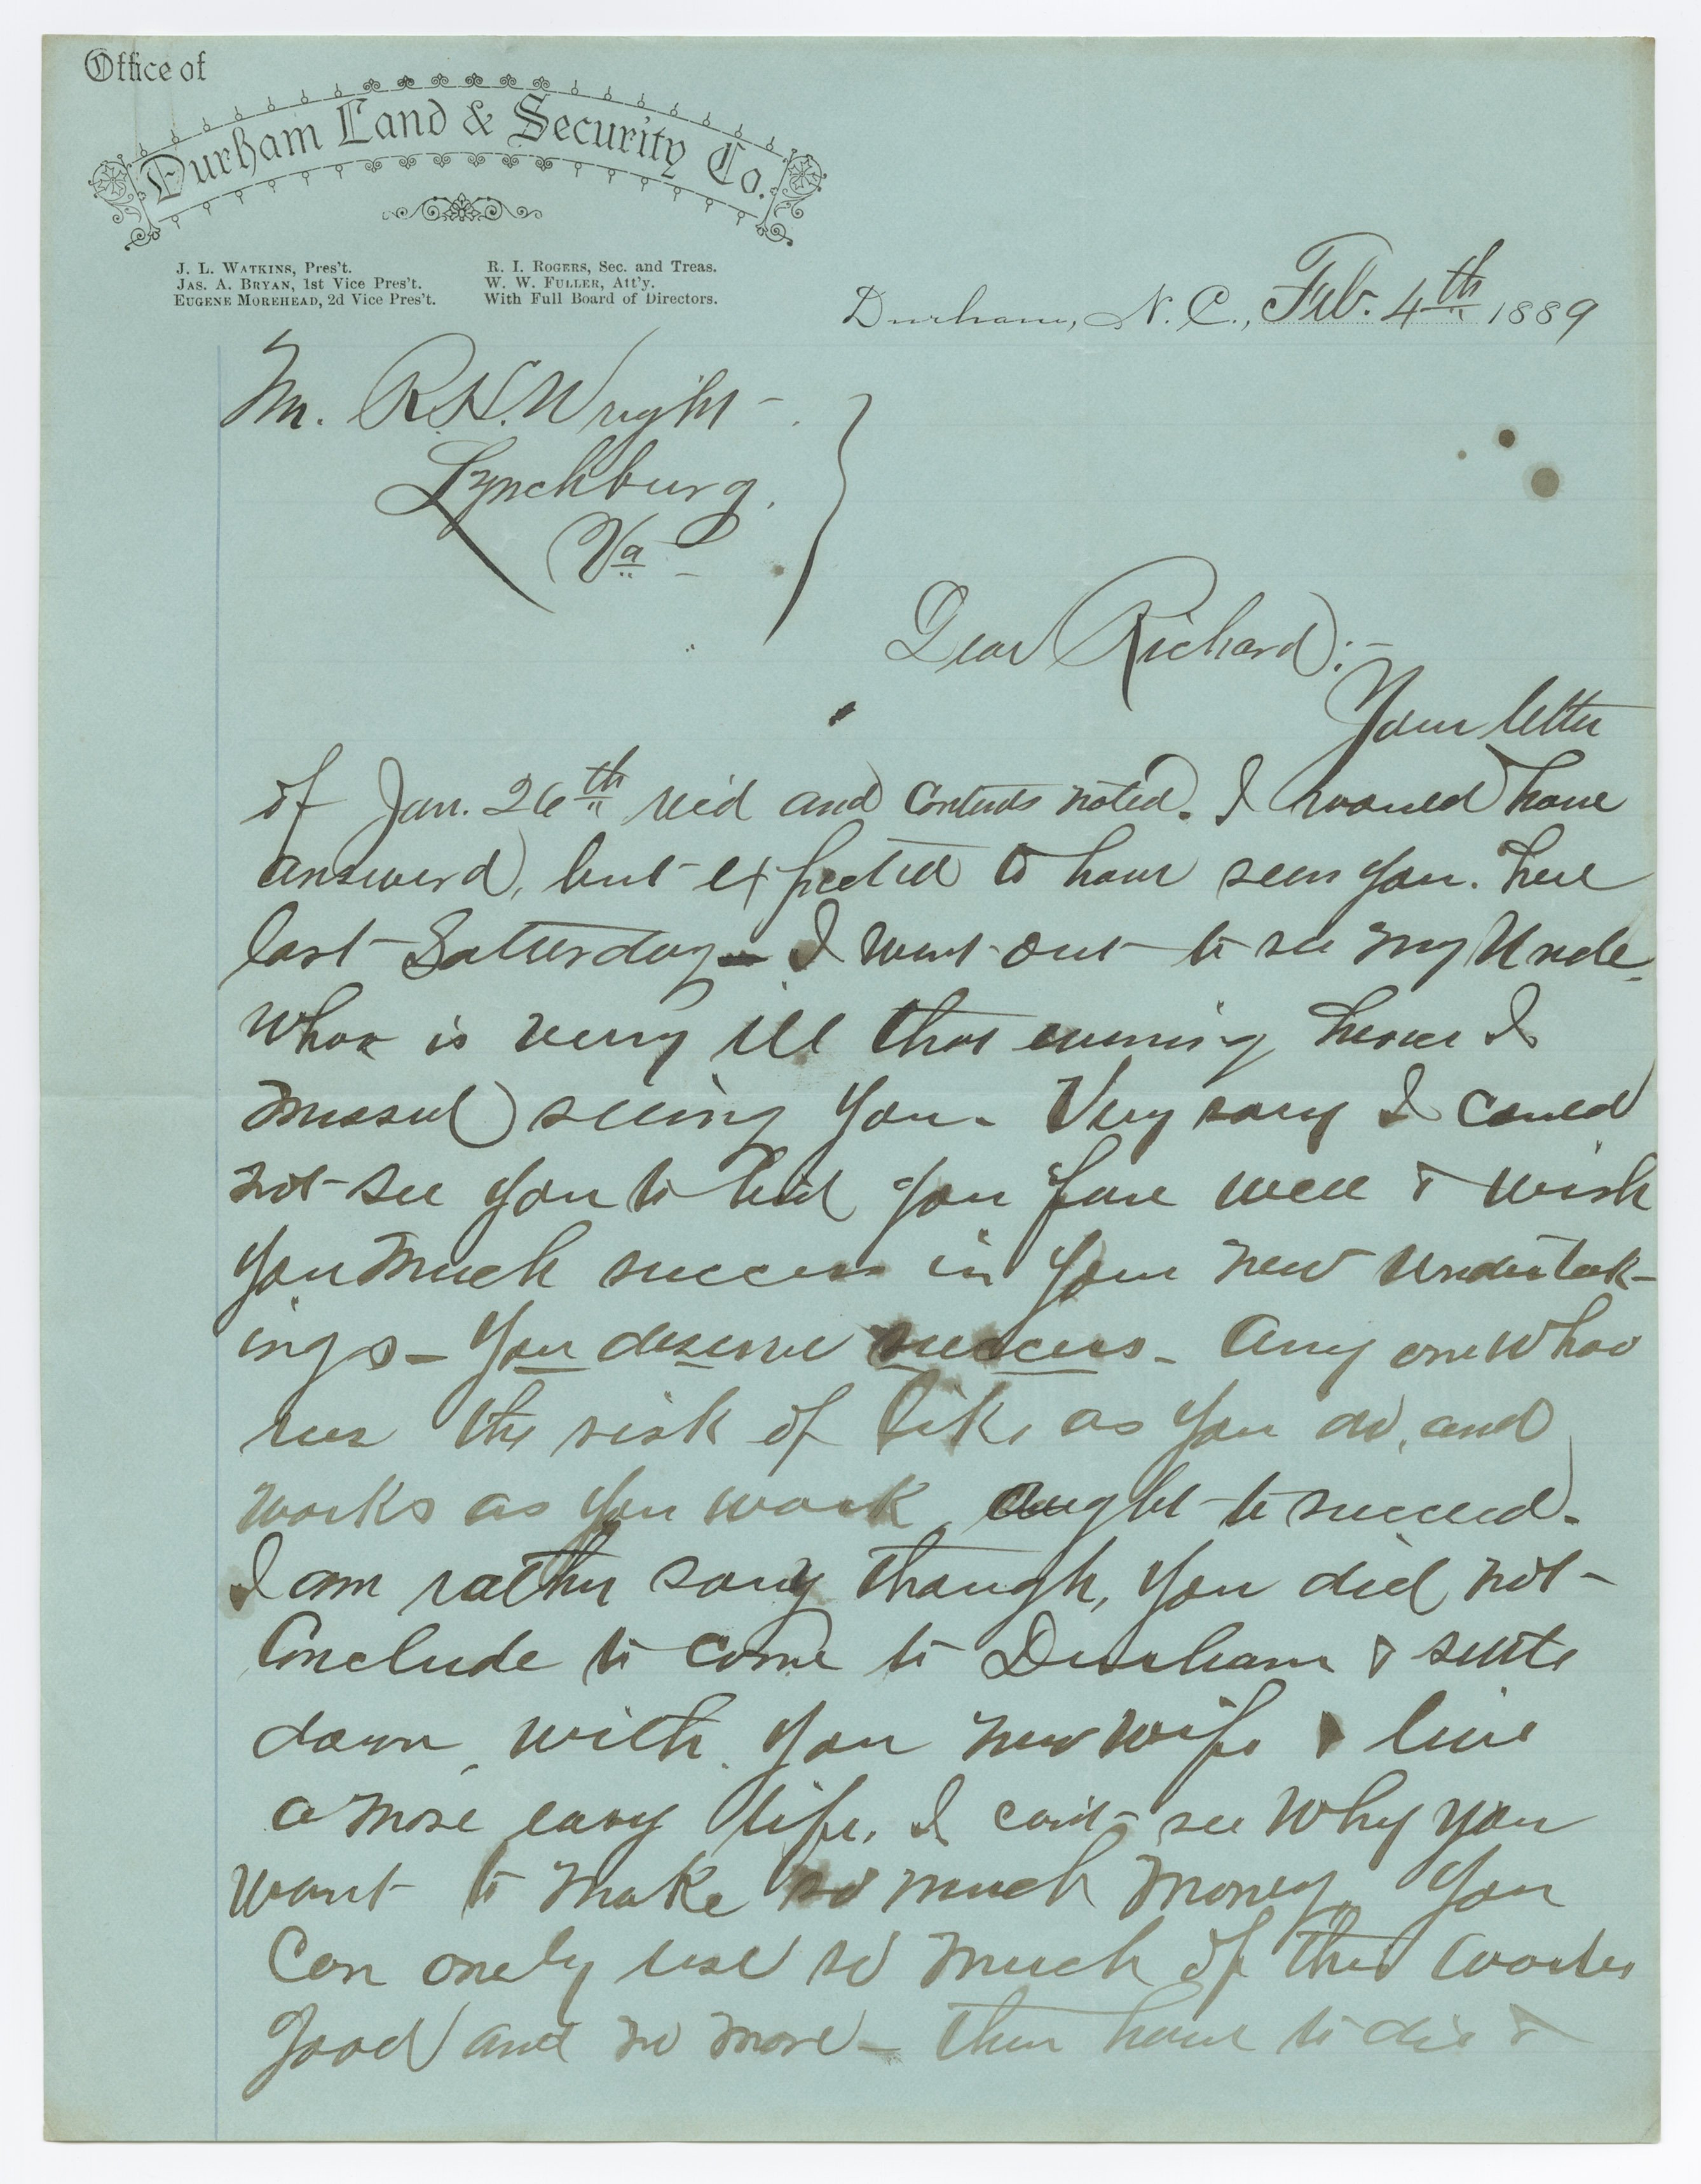 Office of
Durham Land & Security Co.
J. L. WATKINS, Pres't.
JAS. A. BRYAN, 1st Vice Pres't.
EUGENE MOREHEAD, 2d Vice Pres't.
R. I. ROGERS, Sec. and Treas.
W. W. FULLER, Att'y.
With Full Board of Directors.
Durham, N. C., Feb. 4th 1889
Mr. R. H. Wright
Lynchburg,
Va
Dear Richard:-
Your letter
of Jan. 26th rec'd and contents noted. I would have
answerd, but expected to have seen you. here
last Satturday - I went out to see my Uncle
whoo is verry ill that evening hence I
missed seeing you - Very sorry I could
not see you to bid you fare well & wish
you much success in your new undertak-
ings - You deserve success - Any one whoo
runs the risk of life as you do, and
works as you work, ought to succeed -
I am rather sorry though, you did not
conclude to come to Durham & settle
down, with you new wife & live
a more easy life. I can't see why you
want to make so much money. You
can onely use so much of this worlds
good and no more - then have to die &